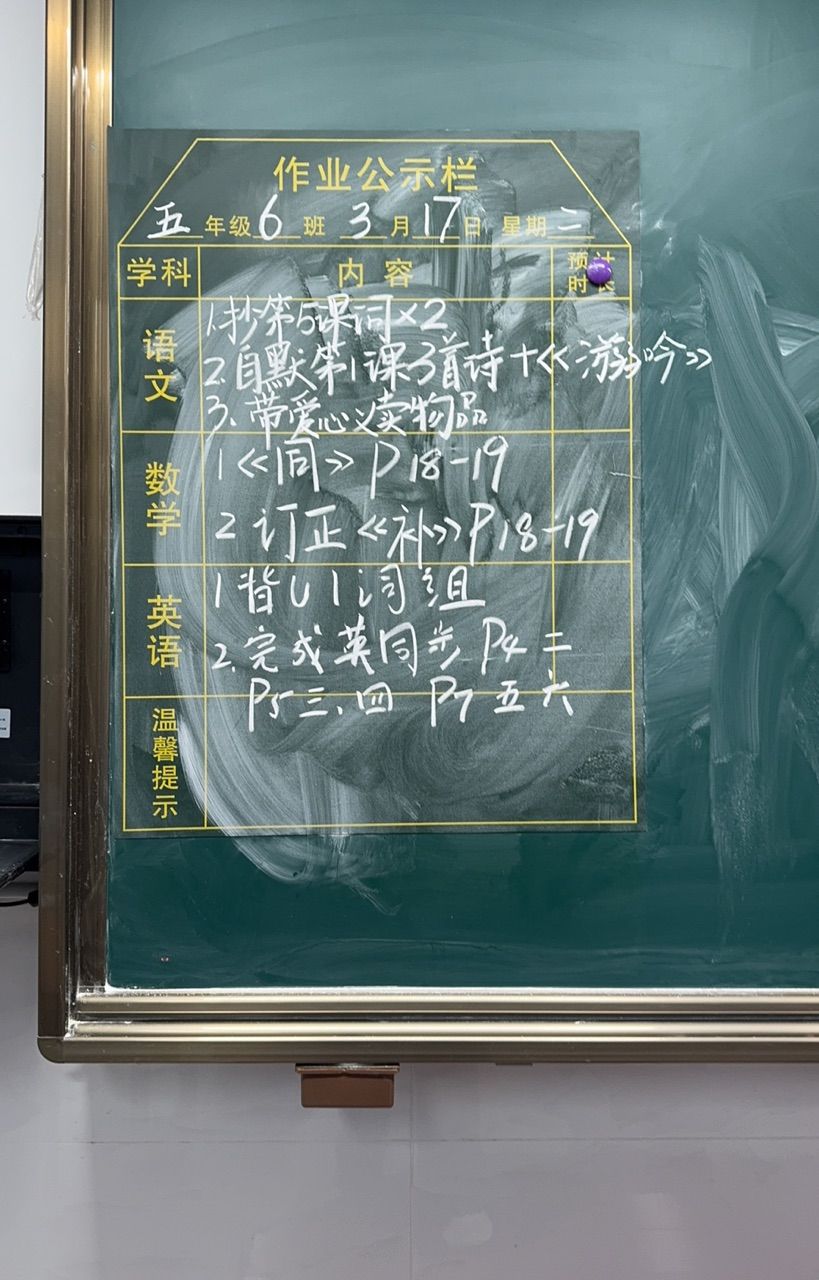 作业公示栏
五 年级 6 班 3 月 17 日 星期 二
学科 内容 预计时长
语文
1.抄第5课词×2
2.自默第1课3首诗+《游子吟》
3.带爱心义卖物品
数学
1《同》P18-19
2 订正《补》P18-19
英语
1 背U1词组
2.完成英同步 P4 二
P5三、四 P7 五六
温馨提示